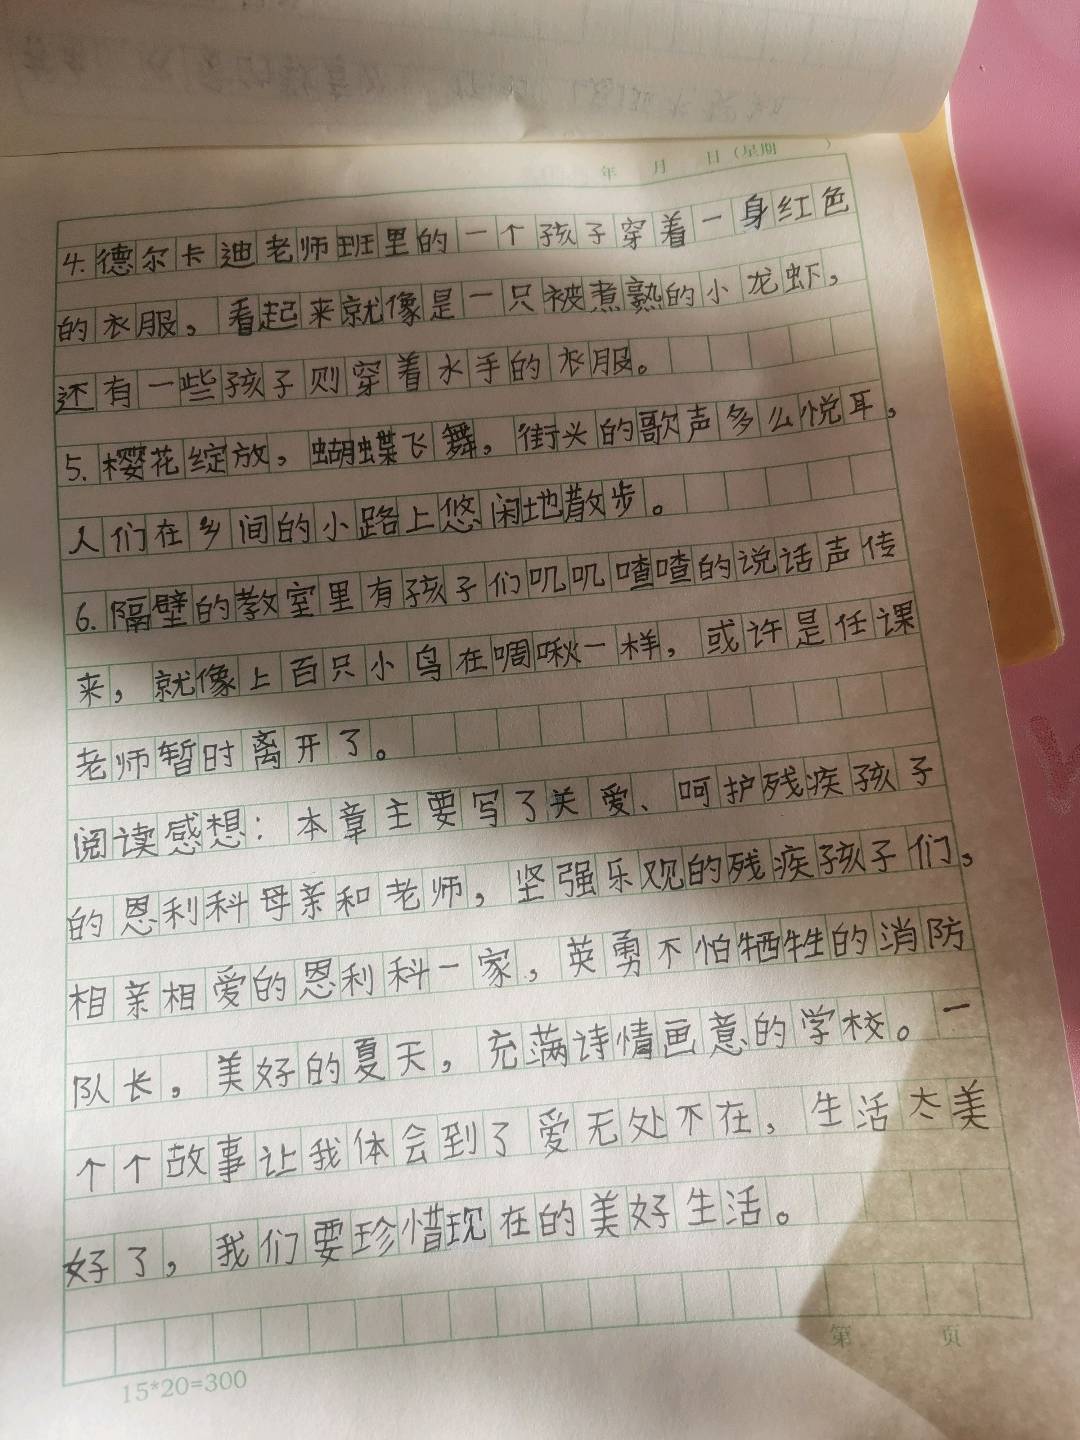 年 月 日（星期 ）
4.德尔卡迪老师班里的一个孩子穿着一身红色
的衣服，看起来就像是一只被煮熟的小龙虾，
还有一些孩子则穿着水手的衣服。
5.樱花绽放，蝴蝶飞舞，街头的歌声多么悦耳，
人们在乡间的小路上悠闲地散步。
6.隔壁的教室里有孩子们叽叽喳喳的说话声传
来，就像上百只小鸟在啁啾一样，或许是任课
老师暂时离开了。
阅读感想：本章主要写了关爱、呵护残疾孩子
的恩利科母亲和老师，坚强乐观的残疾孩子们，
相亲相爱的恩利科一家，英勇不怕牺牲的消防
队长，美好的夏天，充满诗情画意的学校。一
个个故事让我体会到了爱无处不在，生活太美
好了，我们要珍惜现在的美好生活。
第 页
15*20=300